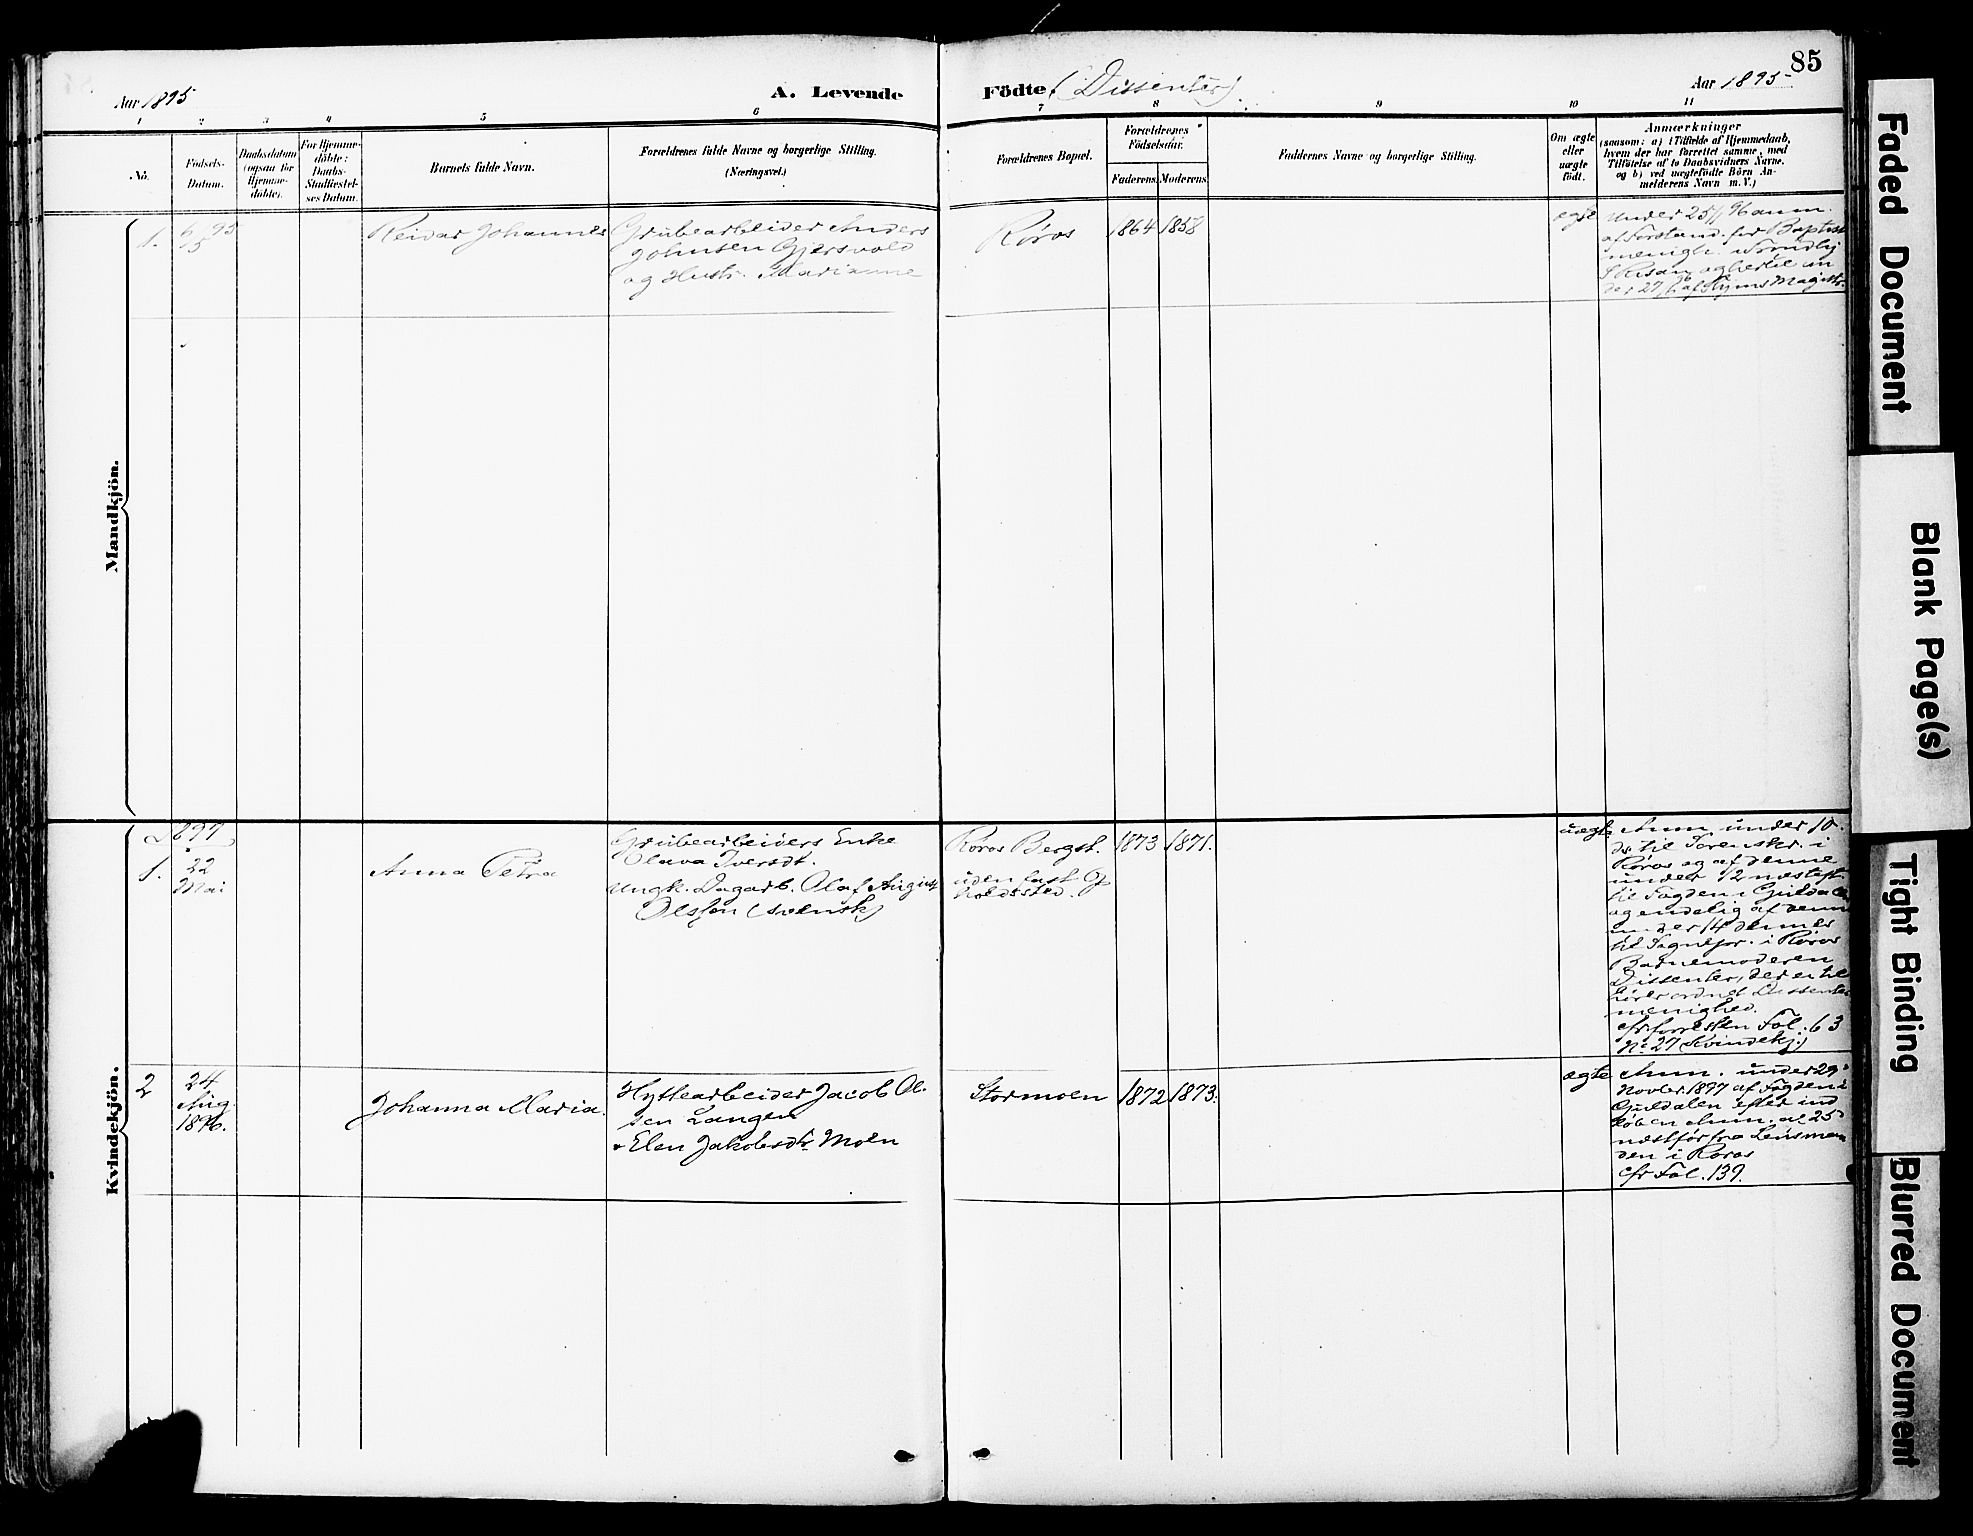 85
Aar 1895
A. Levende
Födte (Dissenter)
Aar 1895
1 2 3 4 5 6 7 8 9 10 11
No.
Födsels-
Datum.
Daabsdatum
(ogsaa för
Hjemme-
döbte).
For Hjemme-
döbte:
Daabs-
Stadfæstel-
ses Datum.
Barnets fulde Navn.
Forældrenes fulde Navne og borgerlige Stilling.
(Næringsvei.)
Forældrenes Bopæl.
Forældrenes
Födselsaar.
Faderens Moderens
Faddernes Navne og borgerlige Stilling.
Om ægte
eller
uægte
födt.
Anmærkninger
(saasom: a) i Tilfælde af Hjemmedaab,
hvem der har forrettet samme, med
Tilföielse af to Daabsvidners Navne,
og b) ved uægtefödte Börn An-
melderens Navn m. V.)
Mandkjön.
1.
6/5 95
Reidar Johannes
Grubearbeider Anders
Johnsen Gjersvold
og Hustr. Marianne
Röros
1864 1858
ægte
under 25/1 96 anm.
af Forstand. for Baptist
menigh. i Trondhj
Magistr.
Kvindekjön.
1897
1.
22
Mai
Anna Petra
Grubearbeiders Enke
Olava Iversdt.
Ungk. Dagarb. Olaf August
Olsson (svensk)
Röros Bergst.
uden fast Op
holdssted.
1873 1871.
uægte
Anm. under 10.
ds til Sorenskr. i
Röros og af denne
under 12 næsteft.
til Fogden i Guldalen
og endelig af denne
under 14 dennes
til Sognepr. i Röros
Barnemoderen
Dissenter, der ei til
hörer ordnet Dissenter
menighed.
cfr forresten Fol. 63
No 27 (Kvindekj.)
2
24
Aug
1896.
Johanna Maria.
Hyttearbeider Jacob Ol-
sen Langen
& Elen Jakobsdtr Moen
Stormoen
1872 1873.
ægte
Anm. under 29
Novbr. 1897 af Fogden i
Guldalen efter ind
löben Anm. af 25
næstför fra Lensman
den i Röros
cfr Fol. 139.
Faded Document
Blank Page(s)
Tight Binding
Blurred Document